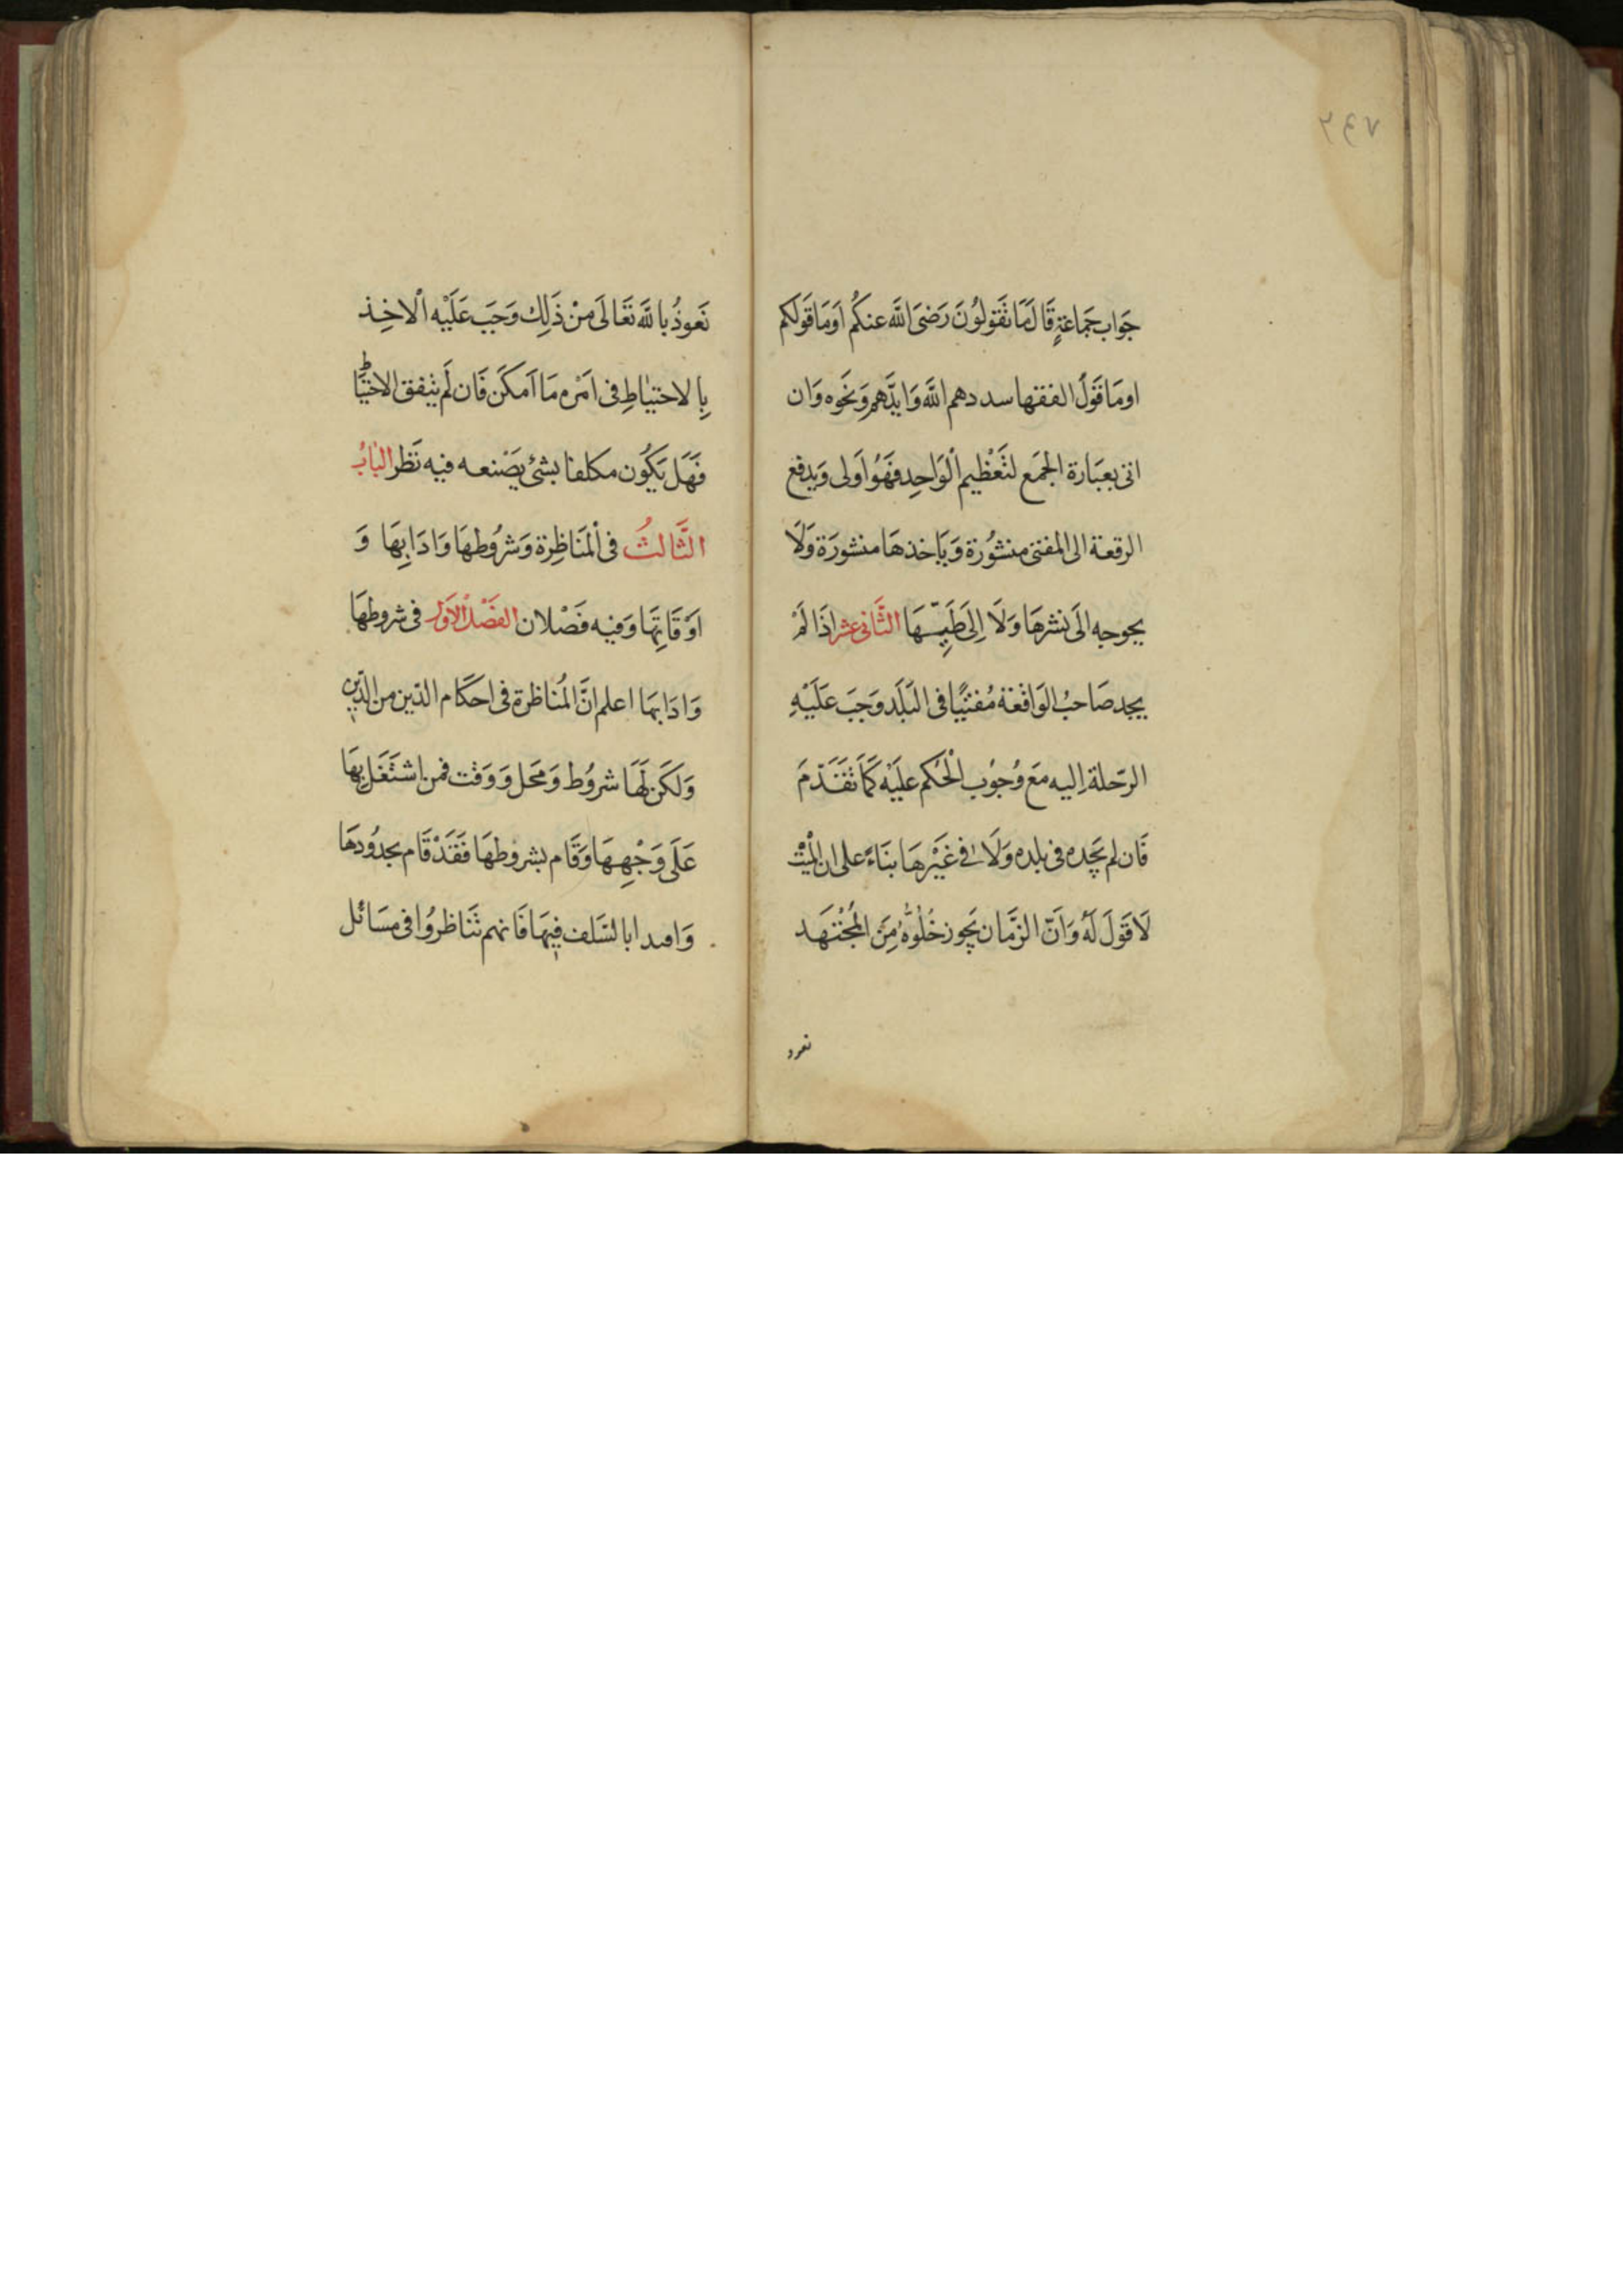 ٢٤٧
جَوَاب جَمَاعَةٍ قَالَ مَا تَقَولوُنَ رَضىَ اللَّه عنكُم اَومَا قَولَكم
اومَا قَولُ الفقها سددهم اللَّه وَايدَّهم وَنَحَوه وَان
اتى بعبَارة الجمَع لتَعْظيم الْوَاحِد فهَوُ اَولى وَيدفع
الرقعة الى المفتى منشوُرة وَيَاخذهَا منشورَة وَلَا
يحوجه الَى نشرهَا وَلَا اِلىَ طَيِّهَا الثَّانى عشر اذَا لَمْ
يجد صَاحبُ الوَاقعَة مُفتيًا فى البَلَد وَجَبَ عَلَيْهِ
الرّحلة اِليه مَع وُجوُب الْحُكم عليَه كَمَا تَقَدّمَ
فَان لم يَجده فى بلده وَلَا فى غَيْرهَا بنَاءً على ان الميّت
لَا قَولَ لَهُ وَاَنّ الزّمَان يَجوز خُلُوّهُ مِنَ المُجْتَهَد
نعوذ
نَعوذُ با للَّه تَعَالَى مِنْ ذَلِك وَجَبَ عَلَيْه الْاخِذ
بِالاحتيَاطِ فى اَمْره مَا اَمكَن فَان لَم يتفق الاحتيَاط
فَهَل يَكُون مكلفا بشئ يَصْنعه فيه نَظر البَابُ
الثَّالثُ فى الْمنَاظِرة وَشرُوطهَا وَادَابِهَا وَ
اَوْقَاتِهَا وَفيه فَصْلان الفَصْلُ الاَوّل فى شروطهَا
وَادَابهَا اعلم انَّ المُنَاظرة فى احَكَام الدّين من الدّين
وَلكَن لَهَا شروُط وَمحَل وَوَقت فمن اشتَغَل بِهَا
عَلَى وَجْهِهَا وَقَام بشروُطهَا فَقَدْ قَام بحدُودهَا
وَاقتدا بالسَلف فِيهَا فَانهم تنَاظروُا فى مسَائل